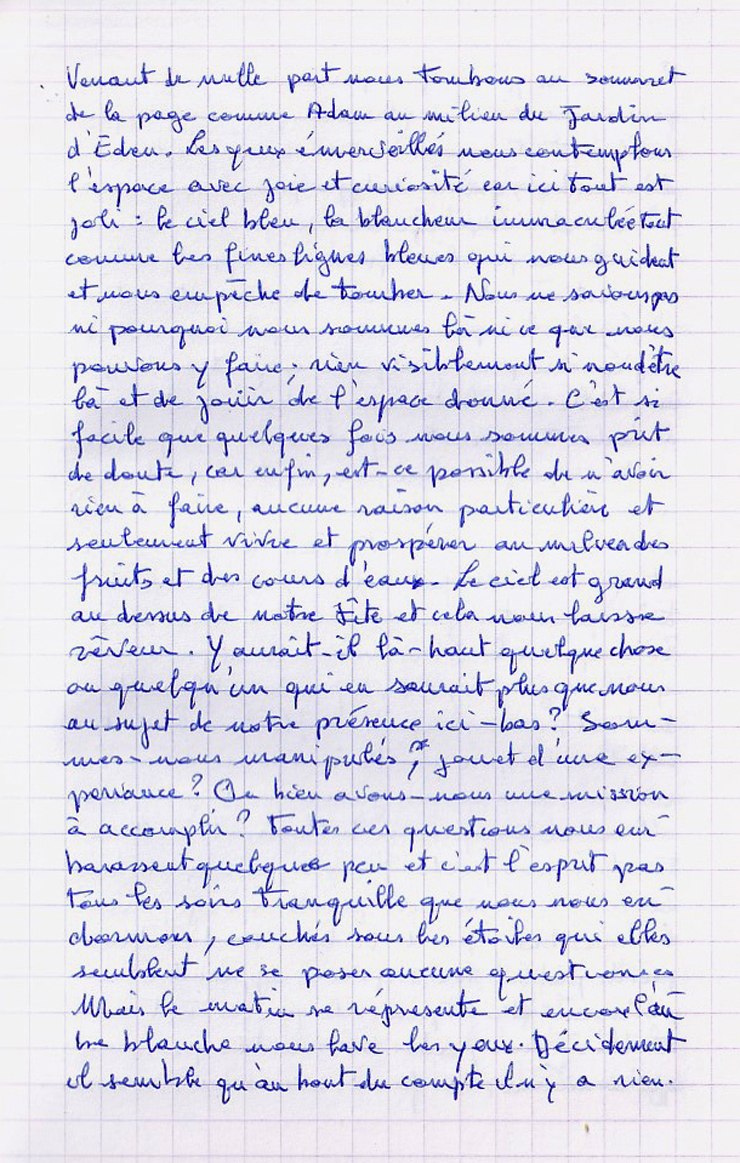 Venant de nulle part nous tombons au sommet
de la page comme Adam au milieu du Jardin
d'Eden. Les yeux émerveillés nous contemplons
l'espace avec joie et curiosité car ici tout est
joli : le ciel bleu, la blancheur immaculée tout
comme les fines lignes bleues qui nous guident
et nous empêche de tomber. Nous ne savons pas
ni pourquoi nous sommes là ni ce que nous
pouvons y faire; rien visiblement si non d'être
là et de jouir de l'espace donné. C'est si
facile que quelques fois nous sommes prit
de doute, car enfin, est-ce possible de n'avoir
rien à faire, aucune raison particulière et
seulement vivre et prospérer au milieu des
fruits et des cours d'eau. Le ciel est grand
au dessus de notre tête et cela nous laisse
rêveur. Y aurait-il là-haut quelque chose
ou quelqu'un qui en saurait plus que nous
au sujet de notre présence ici-bas? Som-
mes-nous manipulés, jouet d'une ex-
periance? Ou bien avons-nous une mission
à accomplir? Toutes ces questions nous em-
barassent quelque peu et c'est l'esprit pas
tous les soirs tranquille que nous nous en-
dormons, couchés sous les étoiles qui elles
semblent ne se poser aucune question
Mais le matin se représente et encore l'au-
be blanche nous lave les yeux. Décidement
il semble qu'au bout du compte il n'y a rien.